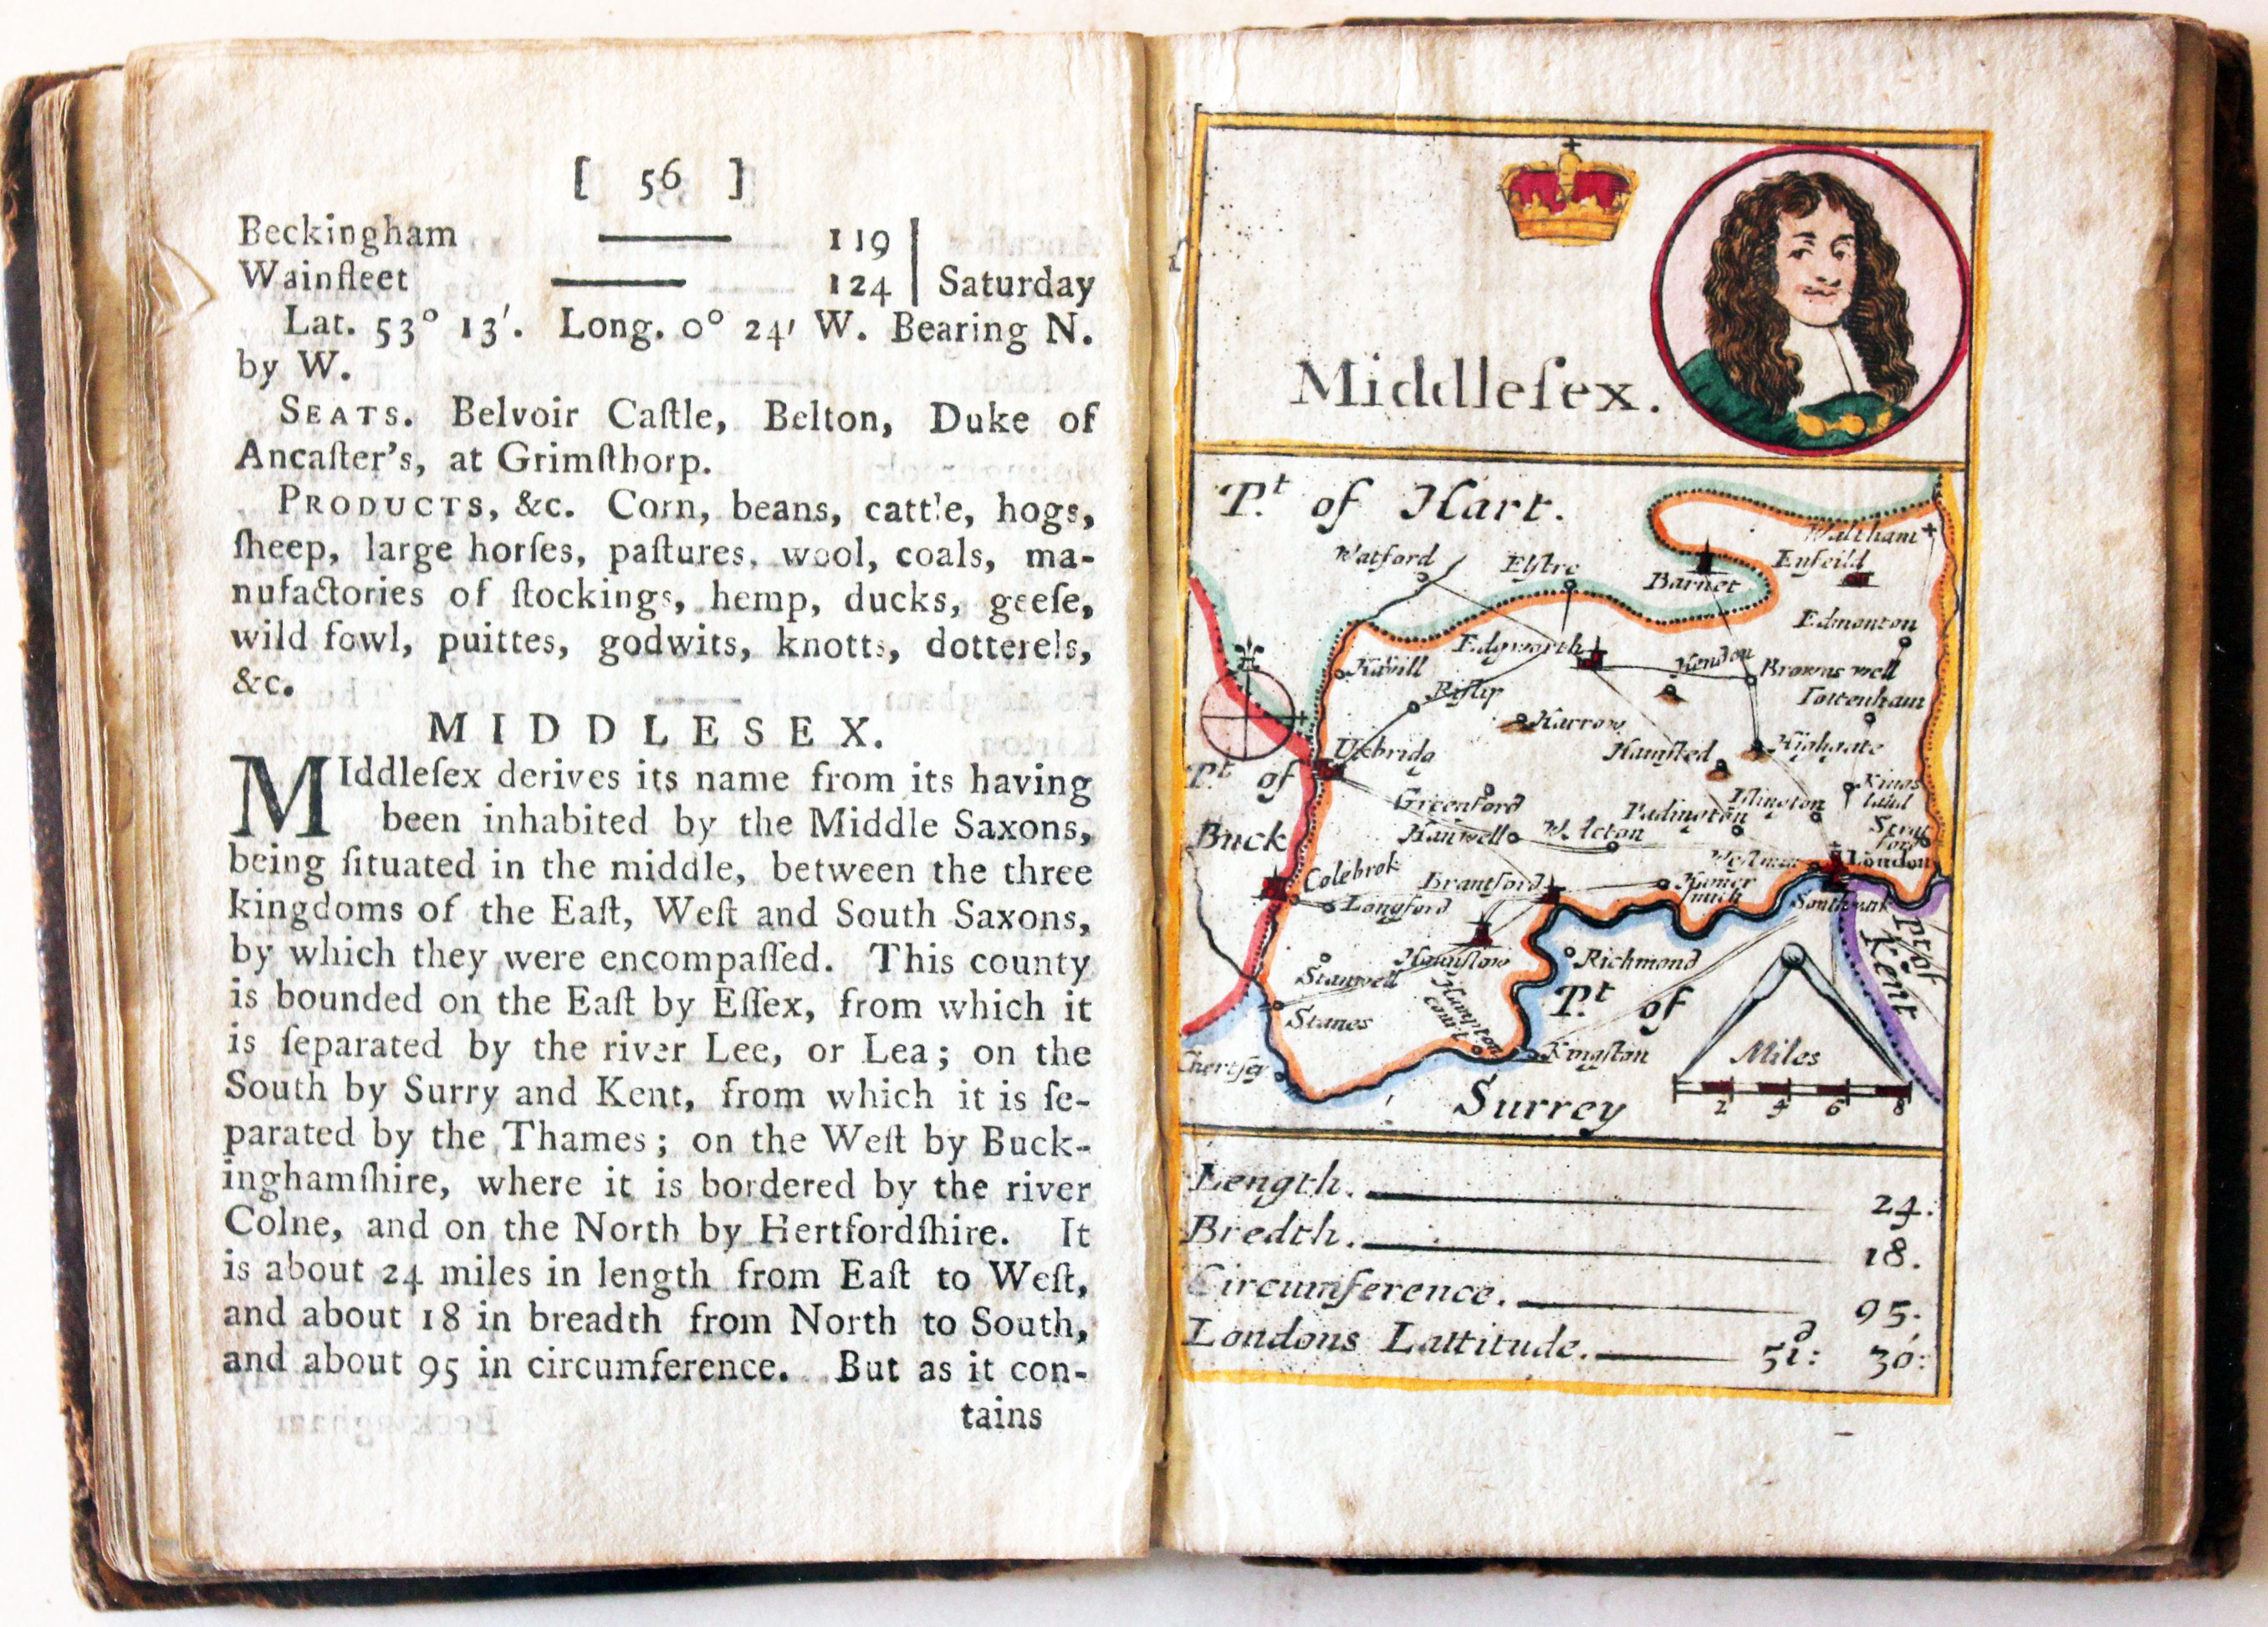 [ 56 ]
Beckingham —— 119
Wainfleet —— 124 | Saturday
Lat. 53° 13′. Long. 0° 24′ W. Bearing N.
by W.
SEATS. Belvoir Caſtle, Belton, Duke of
Ancaſter's, at Grimſthorp.
PRODUCTS, &c. Corn, beans, cattle, hogs,
ſheep, large horſes, paſtures, wool, coals, ma-
nufactories of ſtockings, hemp, ducks, geeſe,
wild fowl, puittes, godwits, knotts, dotterels,
&c.
MIDDLESEX.
MIddleſex derives its name from its having
been inhabited by the Middle Saxons,
being ſituated in the middle, between the three
kingdoms of the Eaſt, Weſt and South Saxons,
by which they were encompaſſed. This county
is bounded on the Eaſt by Eſſex, from which it
is ſeparated by the river Lee, or Lea; on the
South by Surry and Kent, from which it is ſe-
parated by the Thames; on the Weſt by Buck-
inghamſhire, where it is bordered by the river
Colne, and on the North by Hertfordſhire. It
is about 24 miles in length from Eaſt to Weſt,
and about 18 in breadth from North to South,
and about 95 in circumference. But as it con-
tains
Middleſex.
Pt. of Hart.
Waltham
Watford
Elſtre
Barnet
Enfeild
Edmonton
Edgworth
Hendon
Browns well
Riſlip
Tottenham
Harrow
Uxbridg
Hamſted
Highgate
Pt. of
Buck
Kings
land
Greenford
Padington
Iſlington
Hanwell
W. Acton
Strat
ford
London
Colebrok
Brantford
Hamer
ſmith
Longford
Southwark
Pt. of
Kent
Hounſlow
Richmond
Stanwell
Hampton
Court
Pt. of
Stanes
Kingſton
Miles
Chertſey
Surrey
2 4 6 8
Length. —— 24.
Bredth. —— 18.
Circumference. —— 95.
Londons Lattitude. —— 51°: 30′: